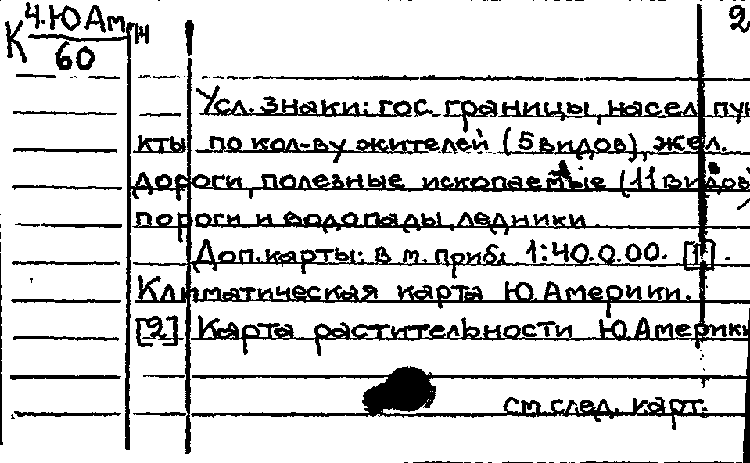 К 4.ЮАм 14 2
60
Усл. знаки: гос. границы, насел пун
кты по кол-ву жителей (5 видов), жел.
дороги, полезные ископаемые (11 видов)
пороги и водопады, ледники
Доп. карты: в м. прибл 1:40.0.00. [1].
Климатическая карта Ю.Америки.
[2] Карта растительности Ю.Америки
см. след. карт.